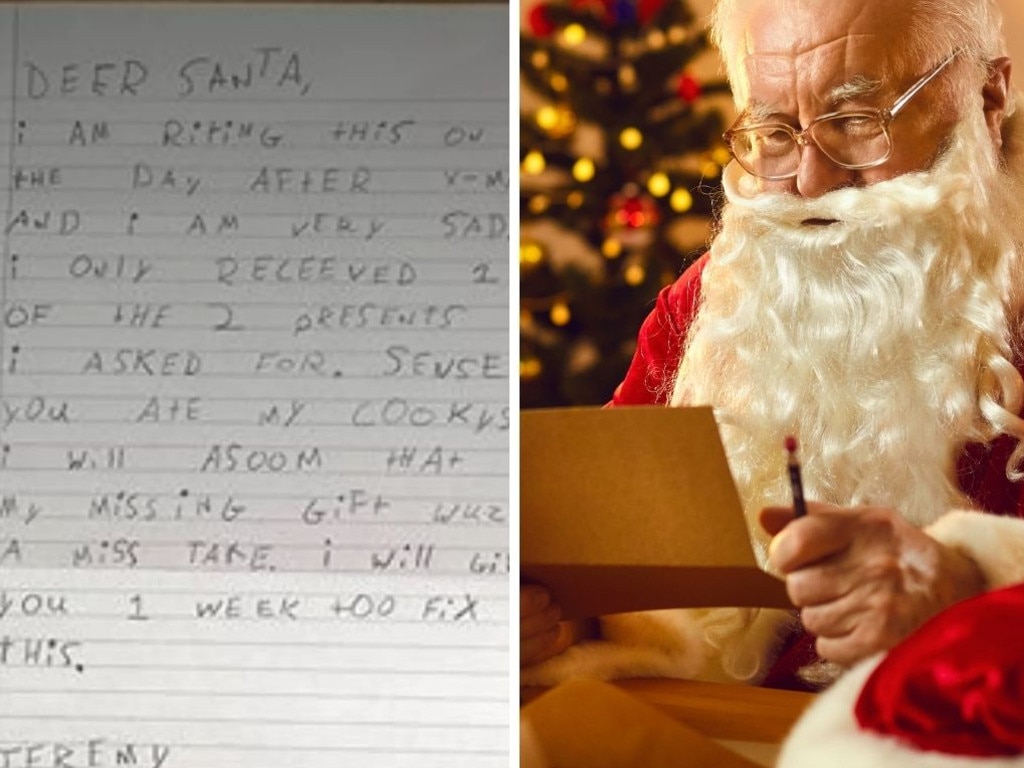 DEER SANTA,
i AM RiTiNG tHiS ON
tHE DAY AFtER X-M
AND i AM VERY SAD.
i ONLY RECEEVED 1
OF tHE 2 PRESENtS
i ASKED FOR. SENSE
YOU AtE MY COOKYS
i Will ASOOM tHAt
MY MiSSiNG GiFt WUZ
A MiSS TAKE. i Will Gi
YOU 1 WEEK tOO FiX
tHiS.
JEREMY